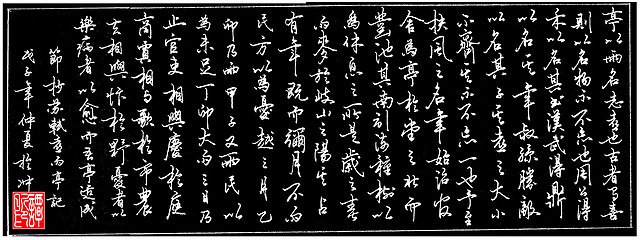 亭以雨名志喜也古者有喜
則以名物示不忘也周公得
禾以名其書漢武得鼎
以名其年叔孫勝敵
以名其子其喜之大小
不齊其示不忘一也予至
扶風之名年始治官
舍為亭於堂之北而
鑿池其南引流種樹以
為休息之所是歲之春
雨麥於岐山之陽其占
有年既而彌月不雨
民方以為憂越三月乙
卯乃雨甲子又雨民以
為未足丁卯大雨三日乃
止官吏相與慶於庭
商賈相與歌於市農
夫相與忭於野憂者以
樂病者以愈而吾亭適成
節抄蘇軾喜雨亭記
戊子年仲夏於沖